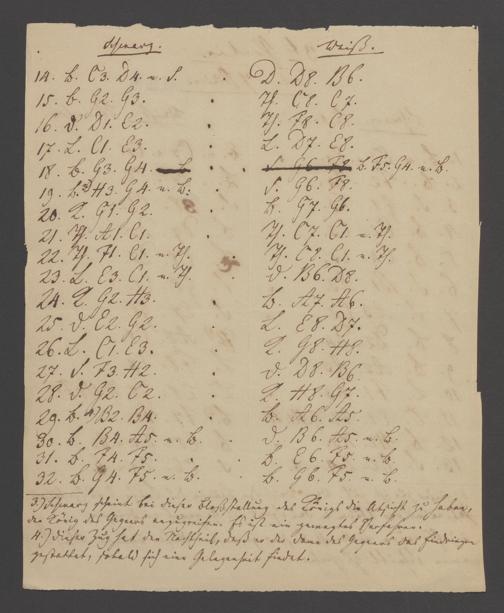 Schwarz. Weiß.
14. b. C3. D4. n. S. D. D8. B6.
15. b. G2. G3. Th. C8. C7.
16. d. D1. E2. Th. F8. C8.
17. L. C1. E3. L. D7. E8.
18. b. G3. G4. S. G6. F8. b. F5. G4. n. b.
19. b. H3. G4. n. b. S. G6. F8.
20. K. G1. G2. b. G7. G6.
21. Th. A1. C1. Th. C7. C1. n. Th.
22. Th. F1. C1. n. Th. Th. C8. C1. n. Th.
23. L. E3. C1. n. Th. d. B6. D8.
24. K. G2. H3. b. A7. A6.
25. d. E2. G2. L. E8. D7.
26. L. C1. E3. K. G8. H8.
27. S. F3. H2. d. D8. B6
28. d. G2. C2. K. H8. G7.
29. b. 4) B2. B4. b. A6. A5.
30. b. B4. A5. n. b. d. B6. A5. n. b.
31. b. F4. F5. b. E6. F5. n. b.
32. b. G4. F5. n. b. b. G6. F5. n. b.
3.) Schwarz scheint bei dieser Bloßstellung des Königs die Absicht zu haben,
den König des Gegners anzugreifen. Es ist ein gewagtes
4.) Dieser Zug hat den Nachtheil, daß er der Dame des Gegners das Eindringen
gestattet, sobald sich eine Gelegenheit findet.